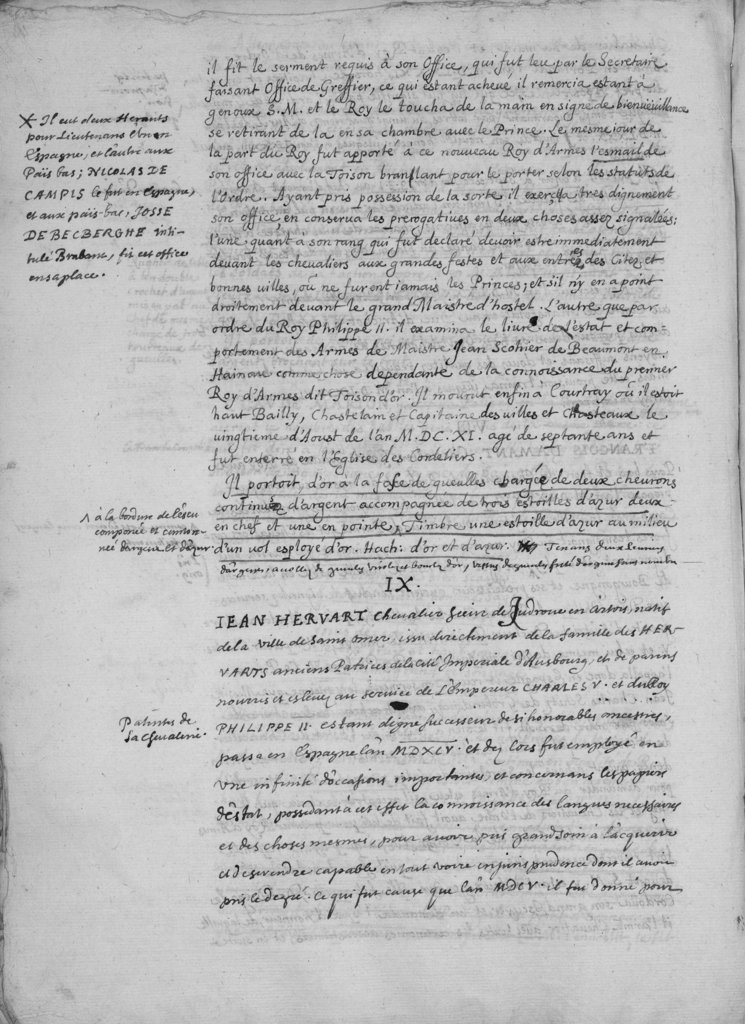 il fit le serment requis à son Office, qui fut leu par le Secretaire
faisant Office de Greffier, ce qui estant acheué il remercia estant à
genoux S.M. et le Roy le toucha de la main en signe de bienueuillance
se retirant de la en sa chambre auec le Prince. Le mesme iour de
la part du Roy fut apporté à ce nouueau Roy d'Armes l'esmail de
son office auec la Toison branslant pour le porter selon les statuts de
l'Ordre. Ayant pris possession de la sorte il exerça tres dignement
son office, en conserua les prerogatiues en deux choses assez signalées:
l'une quant à son rang qui fut declaré deuoir estre immediatement
deuant les cheualiers aux grandes festes et aux entrées des Citez et
bonnes villes, où ne furent iamais les Princes; et s'il n'y en a point
droitement deuant le grand Maistre d'hostel. L'autre que par
ordre du Roy Philippe II. il examina le liure de l'estat et com-
portement des Armes de Maistre Jean Scohier de Beaumont en
Hainau comme chose dependante de la connoissance du premier
Roy d'Armes dit Toison d'or. Il mourut enfin à Courtray où il estoit
haut Bailly, Chastelain et Capitaine des villes et Chasteaux le
vingtieme d'Aoust de l'an M.DC.XI. agé de septante ans et
fut enterré en l'Eglise des Cordeliers.
Il portoit d'or à la fasce de gueulles chargée de deux cheurons
continuez d'argent accompagnée de trois estoilles d'azur deux
en chef et une en pointe ^ Timbre une estoille d'azur au milieu
d'un vol esployé d'or. Hach: d'or et d'azur. Tenans deux Leuriers
d'argent, accollez de gueules
✕ Il eut deux Herauts
pour Lieutenans l'un en
Espagne, et l'autre aux
Païs bas; NICOLAS DE
CAMPIS le fut en espagne,
et aux païs-bas, JOSSE
DE BECBERGHE inti-
tulé Brabant, fit cet office
en sa place.
^ à la bordure de l'escu
componée et canton-
née d'argent et d'azur
IX.
JEAN HERVART Cheualier Seigr de Judroue en Artois, natif
de la ville de Saint Omer, issu directement de la famille des HER-
VARTS anciens Patrices de la cité Imperiale d'Ausbourg, et de parens
nourris et esleuez au seruice de l'Empereur CHARLES V. et du Roy
PHILIPPE II. estant digne successeur de si honorables ancestres,
passa en Espagne l'an MDXCV. et dez lors fut employé en
vne infinité d'occasions importantes, et concernans les papiers
d'estat, possedant à cet effet la connoissance des langues necessaires
et des choses mesmes, pour auoir pris grand soin à l'acquerir
et de se rendre capable en tout voire en jurisprudence dont il auoit
pris le degré. Ce qui fut cause que l'an MDCV. il fut donné pour
Patentes de
sa Cheualerie.